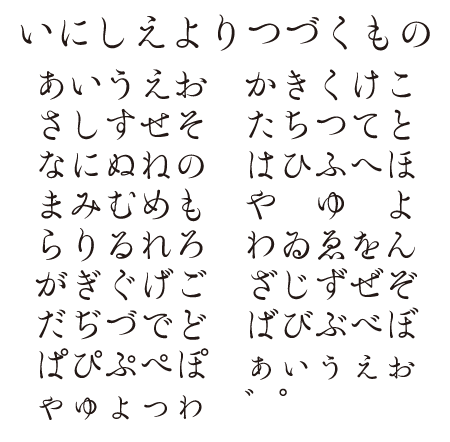 いにしえよりつづくもの
あいうえお かきくけこ
さしすせそ たちつてと
なにぬねの はひふへほ
まみむめも や ゆ よ
らりるれろ わゐゑをん
がぎぐげご ざじずぜぞ
だぢづでど ばびぶべぼ
ぱぴぷぺぽ ぁぃぅぇぉ
ゃゅょっゎ ゛゜